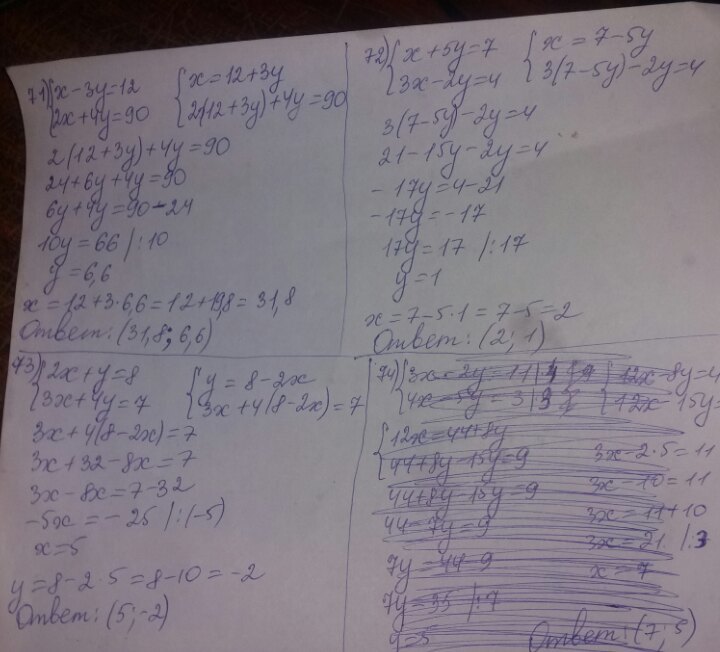 71) { x-3y=12   { x=12+3y
{ 2x+4y=90   { 2(12+3y)+4y=90
2(12+3y)+4y=90
24+6y+4y=90
6y+4y=90-24
10y=66 |:10
y=6,6
x=12+3·6,6=12+19,8=31,8
Ответ: (31,8; 6,6)
72) { x+5y=7   { x=7-5y
{ 3x-2y=4   { 3(7-5y)-2y=4
3(7-5y)-2y=4
21-15y-2y=4
-17y=4-21
-17y=-17
17y=17 |:17
y=1
x=7-5·1=7-5=2
Ответ: (2; 1)
73) { 2x+y=8   { y=8-2x
{ 3x+4y=7   { 3x+4(8-2x)=7
3x+4(8-2x)=7
3x+32-8x=7
3x-8x=7-32
-5x=-25 |:(-5)
x=5
y=8-2·5=8-10=-2
Ответ: (5;-2)
74) { 3x-2y=11 |4   { 12x-8y=4
{ 4x-5y=3 |3   { 12x-15y=
{ 12x=44+8y
{ 44+8y-15y=9   3x-2·5=11
44+8y-15y=9   3x-10=11
44-7y=9   3x=11+10
7y=44-9   3x=21 |:3
7y=35 |:7   x=7
y=5   Ответ: (7; 5)